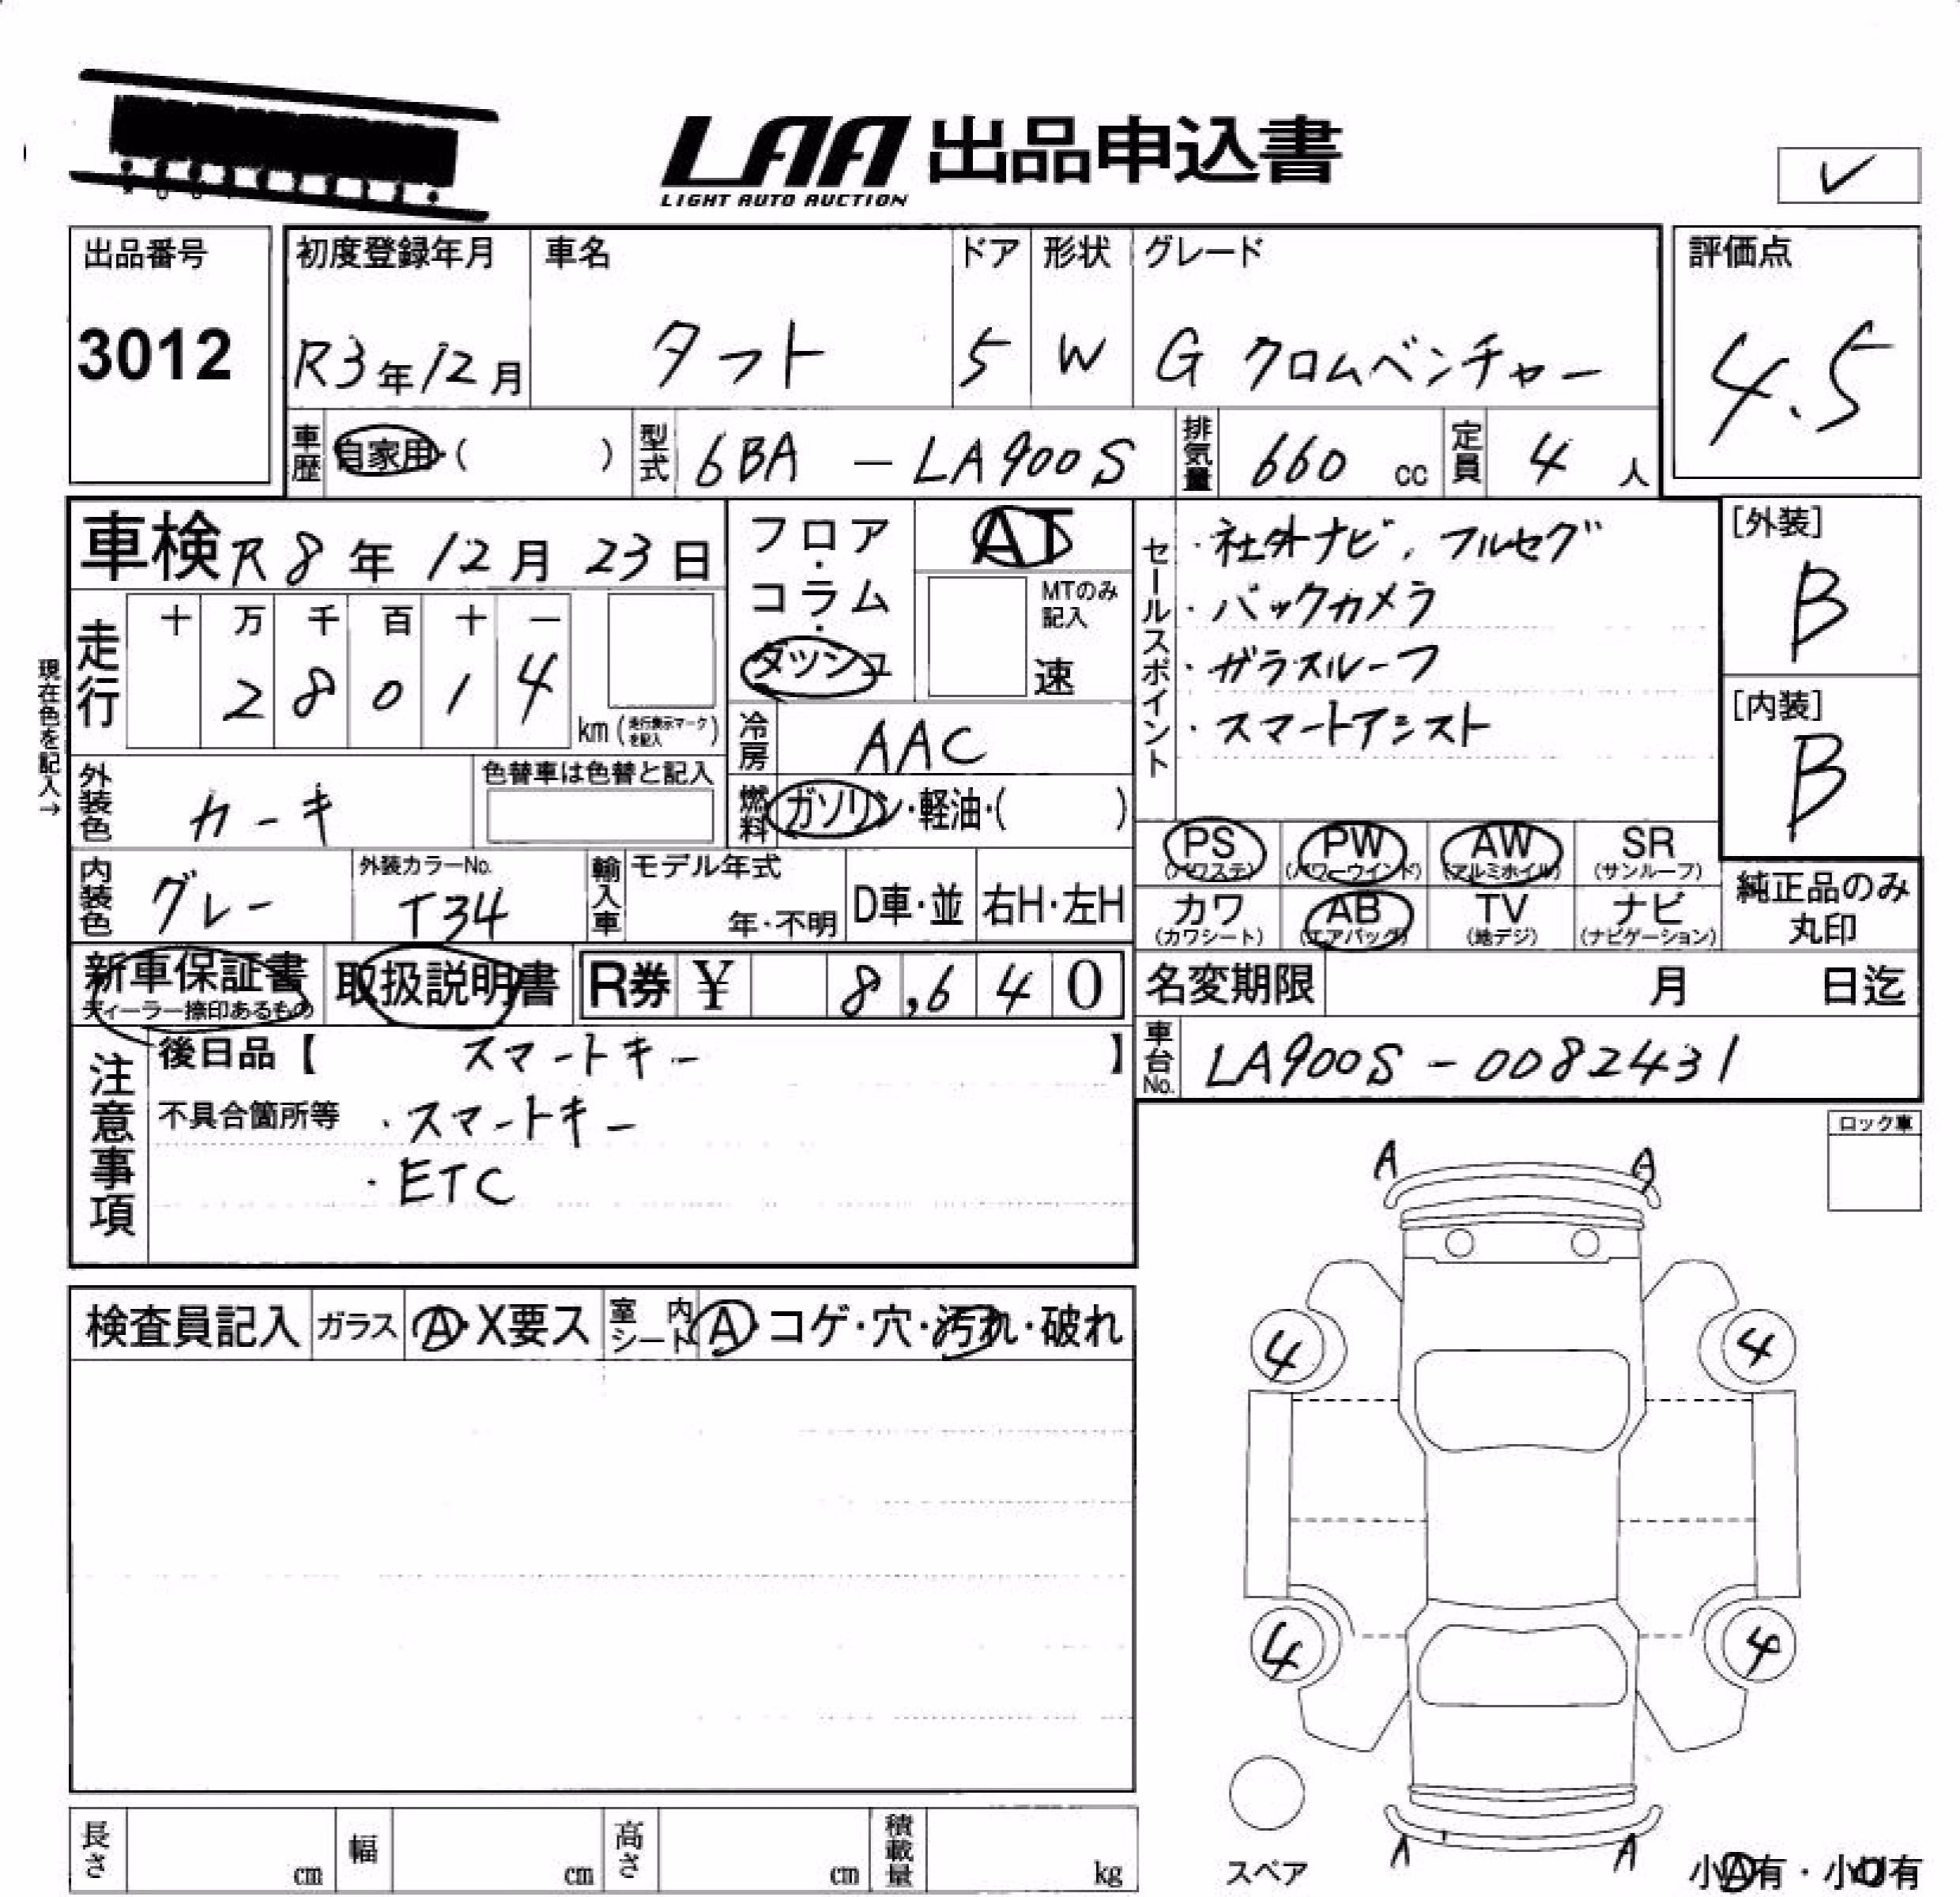 LAA 出品申込書
LIGHT AUTO AUCTION
✓
出品番号
3012
初度登録年月
R3年12月
車名
タフト
ドア
5
形状
W
グレード
G クロムベンチャー
評価点
4.5
車歴
自家用・( )
型式
6BA - LA900S
排気量
660 cc
定員
4 人
車検 R8年 12月 23日
現在色を記入→
走行
十 万 千 百 十 一
2 8 0 1 4
km(走行表示マークを記入)
フロア・コラム・ダッシュ
AT
MTのみ記入
速
冷房
AAC
燃料
ガソリン・軽油・( )
セールスポイント
・社外ナビ、フルセグ
・バックカメラ
・ガラスルーフ
・スマートアシスト
[外装]
B
[内装]
B
外装色
カーキ
色替車は色替と記入
内装色
グレー
外装カラーNo.
T34
輸入車
モデル年式
年・不明
D車・並
右H・左H
PS (パワステ)
PW (パワーウインド)
AW (アルミホイル)
SR (サンルーフ)
カワ (カワシート)
AB (エアバッグ)
TV (地デジ)
ナビ (ナビゲーション)
純正品のみ
丸印
新車保証書
ディーラー捺印あるもの
取扱説明書
R券 ¥ 8,640
名変期限 月 日迄
車台No.
LA900S-0082431
注意事項
後日品【 スマートキー 】
不具合箇所等 ・スマートキー
・ETC
ロック車
検査員記入
ガラス
A・X要ス
室内シート
A・コゲ・穴・汚れ・破れ
A A
4 4
4 4
A A
スペア
小A有・小U有
長さ cm
幅 cm
高さ cm
積載量 kg